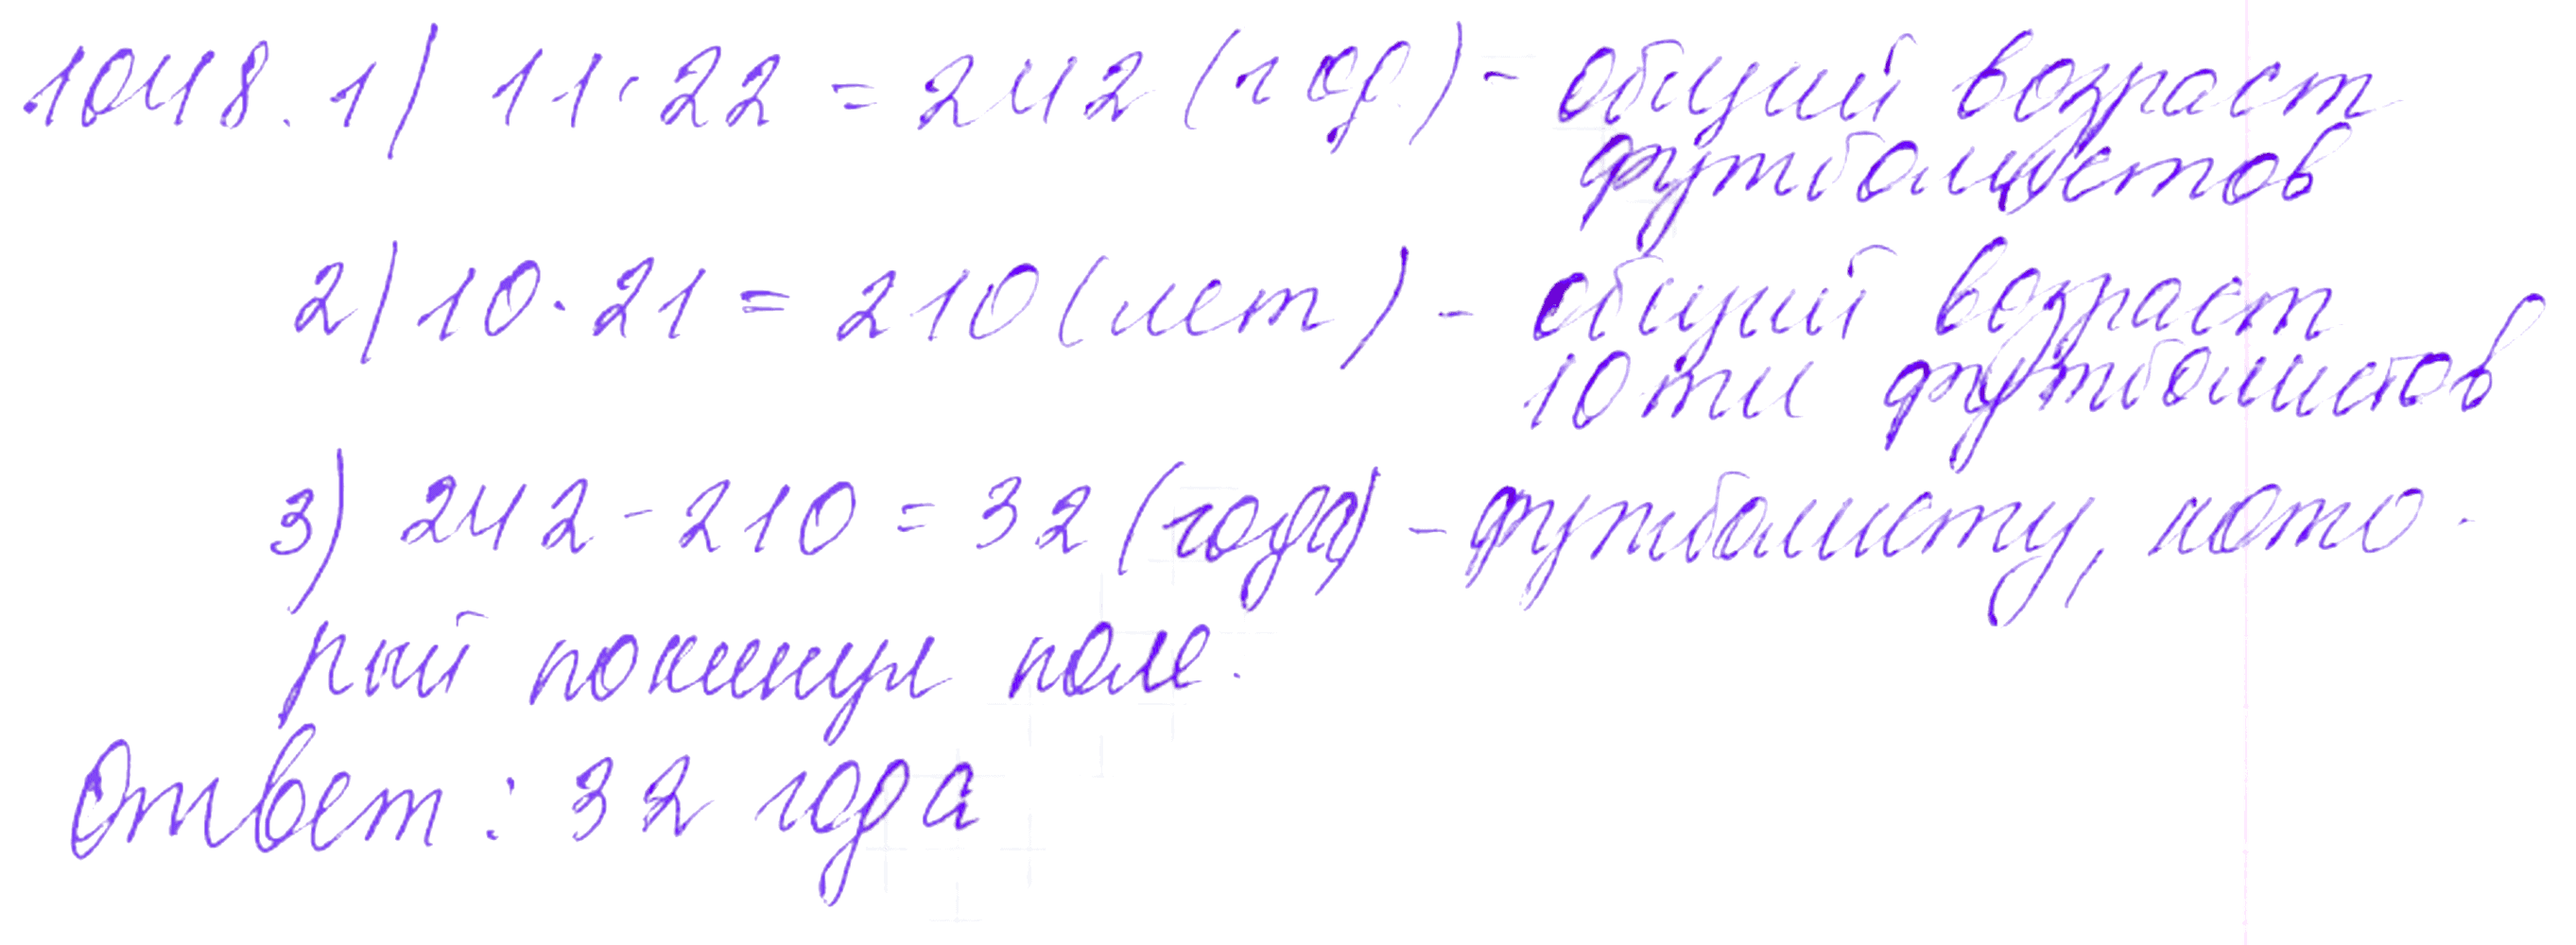 1048. 1) 11 · 22 = 242 (год) - общий возраст
футболистов
2) 10 · 21 = 210 (лет) - общий возраст
10ти футболистов
3) 242 - 210 = 32 (года) - футболисту, кото-
рый покинул поле.
Ответ: 32 года